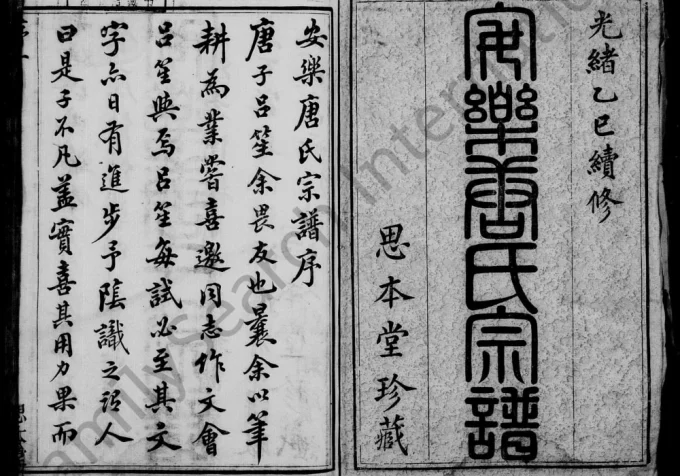 光緒乙巳續修
安樂唐氏宗譜
思本堂珍藏
安樂唐氏宗譜序
唐子吕笙余畏友也曩余以筆
耕為業嘗喜邀同志作文會
吕笙與焉吕笙每試必至其文
字亦日有進步予陰識之語人
曰是子不凡蓋實喜其用力果而
FamilySearch International